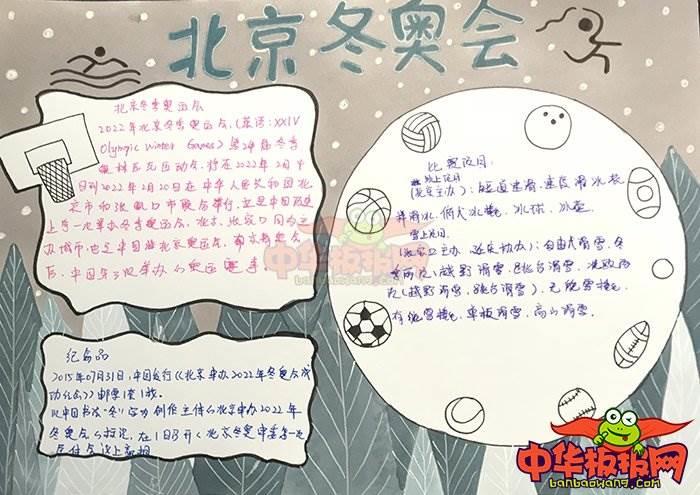 北京冬奥会
北京冬季奥运会
2022年北京冬季奥运会,(英语:XXIV
Olympic Winter Games)第24届冬季
奥林匹克运动会,将在2022年2月4
日到2022年2月20在中华人民共和国北
京市和张家口市联合举行,这是中国历史
上第一次举办冬季奥运会,北京、张家口同为主
办城市,也是中国继北京奥运会,南京青奥会
后,中国第三次举办的奥运赛事
纪念品
2015年07月31日,中国发行《北京申办2022年冬奥会成
功纪念》邮票1套1枚。
以中国书法“冬”字为创作主体
冬奥会的标识,在
比赛项目:
冰上项目
(北京主办):短道速滑,速度滑冰,花
样滑冰,冰球,冰壶。
雪上项目
(张家口主办 延庆协办):自由式滑雪,冬
季两项(越野滑雪,跳台滑雪,北欧两
项(越野滑雪,跳台滑雪),无舵雪橇,
有舵雪橇,单板滑雪,高山滑雪.
中华板报网
banbaowang.com
中华板报网
banbaowang.com